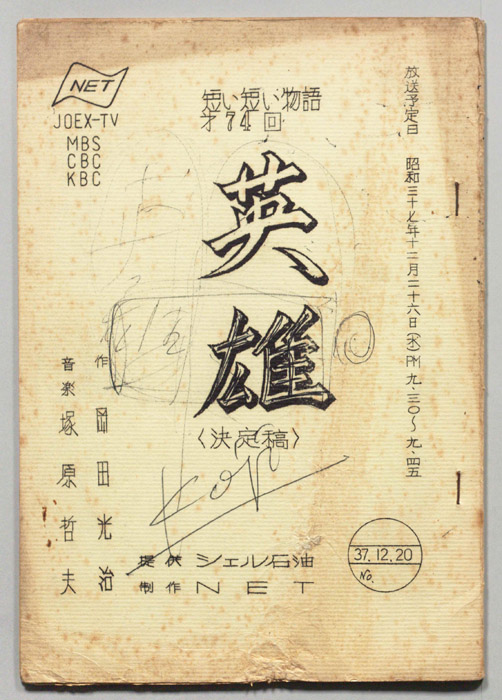 NET
JOEX-TV
MBS
CBC
KBC
短い短い物語
才74回
英雄
〈決定稿〉
放送予定日 昭和三十七年十二月二十六日(水)PM九.三〇〜九.四五
作 岡田光治
音楽 塚原哲夫
提供 シェル石油
制作 NET
37.12.20
No.